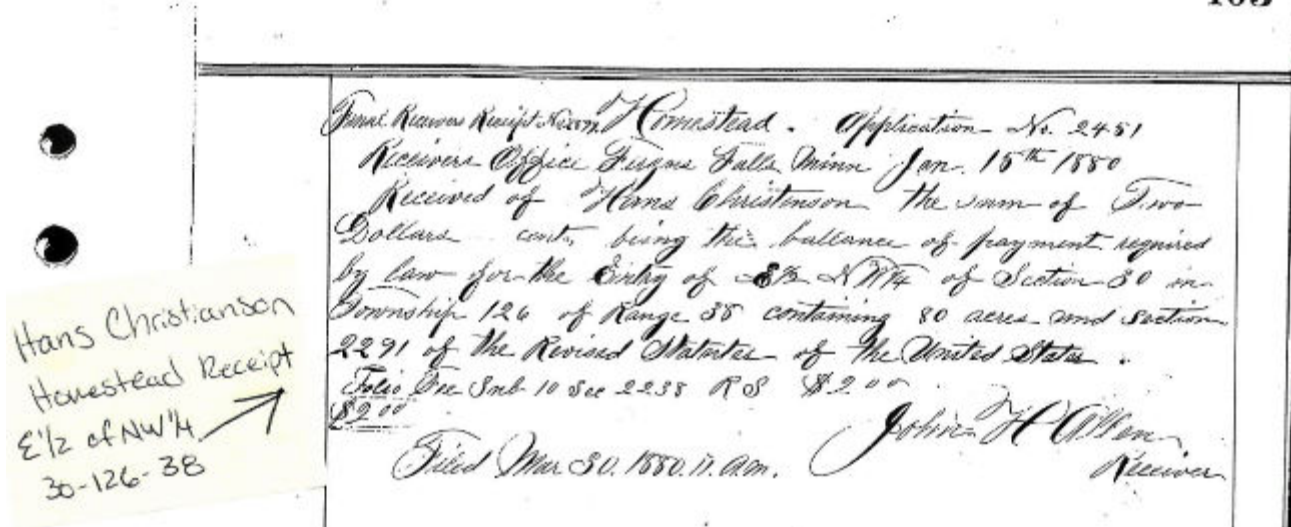 103
Final Receivers Receipt No. Homestead. Application No. 2451
Receivers Office Fergus Falls Minn Jan. 15th 1880
Received of Hans Christenson the sum of Two
Dollars cents being the ballance of payment required
by law for the Entry of E½ NW¼ of Section 30 in
Township 126 of Range 38 containing 80 acres und Section
2291 of the Revised Statutes of the United States.
Fee Sub 10 Sec 2238 R S $2.00
$2.00
John H Allen
Receiver
Filed Mar 30. 1880. 11. a.m.
Hans Christianson
Homestead Receipt
E1/2 of NW1/4
30-126-38